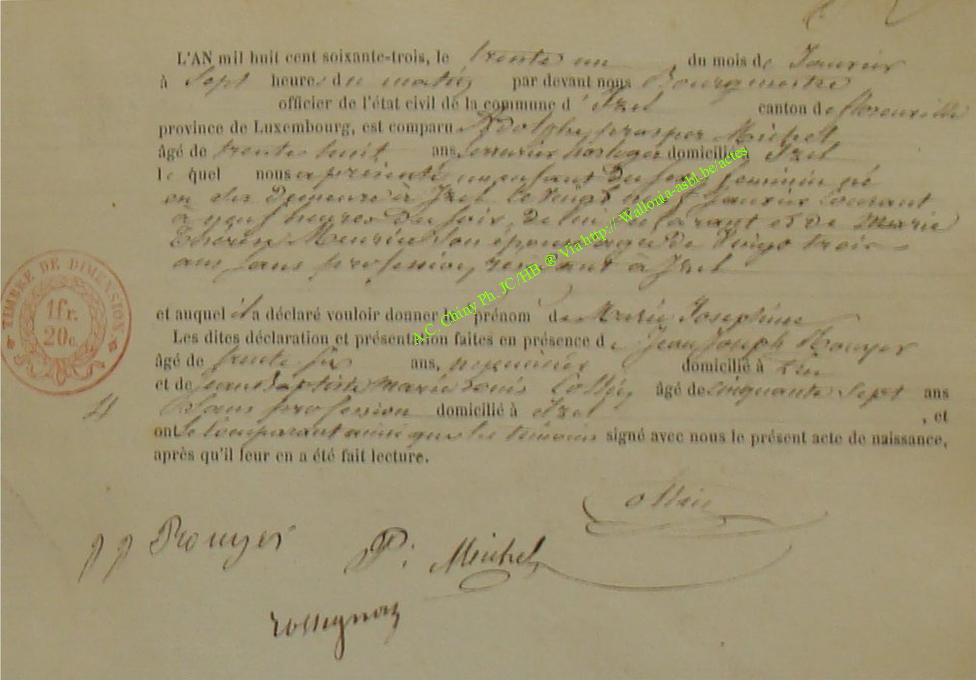 L'AN mil huit cent soixante-trois, le trente un du mois de Janvier
à Sept heures du matin par devant nous Bourgmestre
officier de l'état civil de la commune d'Izel canton de florenville
province de Luxembourg, est comparu Adolphe prosper Michel
âgé de trente huit ans, serrurier horloger domicilié à Izel
le quel nous a présenté un enfant du sexe feminin né
en sa Demeure à Izel le vingt Janvier courant
à neuf heures du soir, de lui déclarant et de Marie
Therese Meunier Son épouse agée de Vingt trois
ans sans profession, residant à Izel
et auquel il a déclaré vouloir donner le prénom de Marie Josephine
Les dites déclaration et présentation faites en présence de Jean Joseph Rouyer
âgé de trente six ans, domicilié à Izel
et de jean Baptiste marie Louis Collin âgé de cinquante Sept ans
Sans profession domicilié à Izel , et
ont le comparant ainsi que les témoins signé avec nous le présent acte de naissance,
après qu'il leur en a été fait lecture.
TIMBRE DE DIMENSION
1fr.
20c.
4
A.C. Chiny Ph. JC/HB ® Via http://Wallonia-asbl.be/actes
ollin
jj Rouyer
P. Michel
rossignon